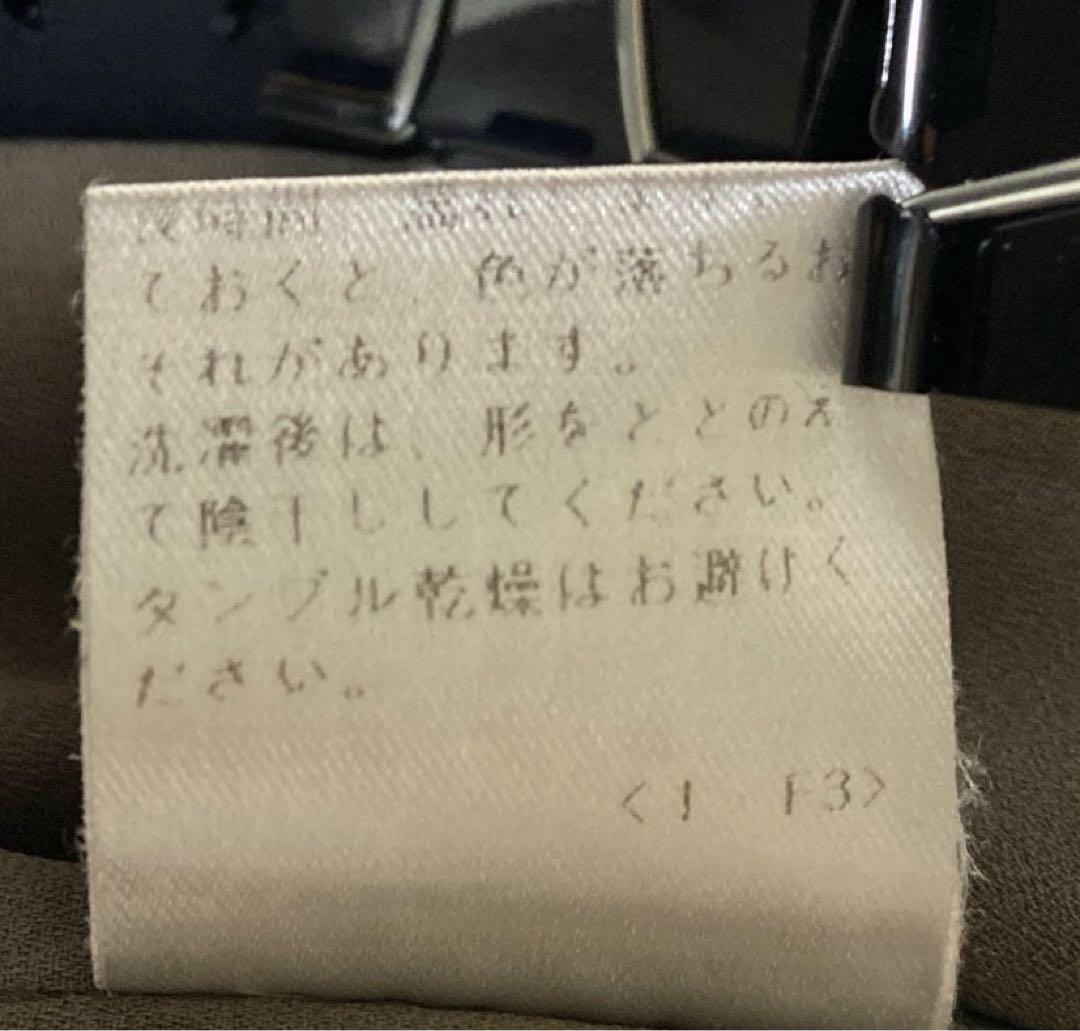 長時間
ておくと、色が落ちるお
それがあります。
洗濯後は、形をととのえ
て陰干ししてください。
タンブル乾燥はお避けく
ださい。
<J F3>